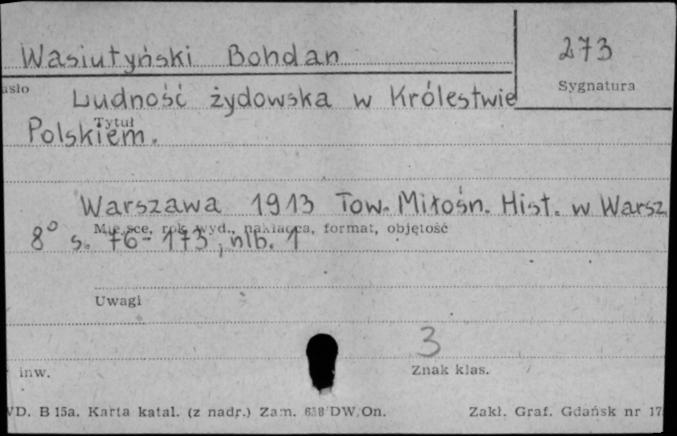 Wasiutyński Bohdan
273
Sygnatura
asło
Ludność żydowska w Królestwie
Tytuł
Polskiem.
Warszawa 1913 Tow. Miłośn. Hist. w Warsz
Miejsce, rok wyd., nakładca, format, objętość
8° s. 76-173, nlb. 1
Uwagi
3
inw.
Znak klas.
D. B 15a. Karta katal. (z nadr.) Zam. DW, On. Zakł. Graf. Gdańsk nr 17